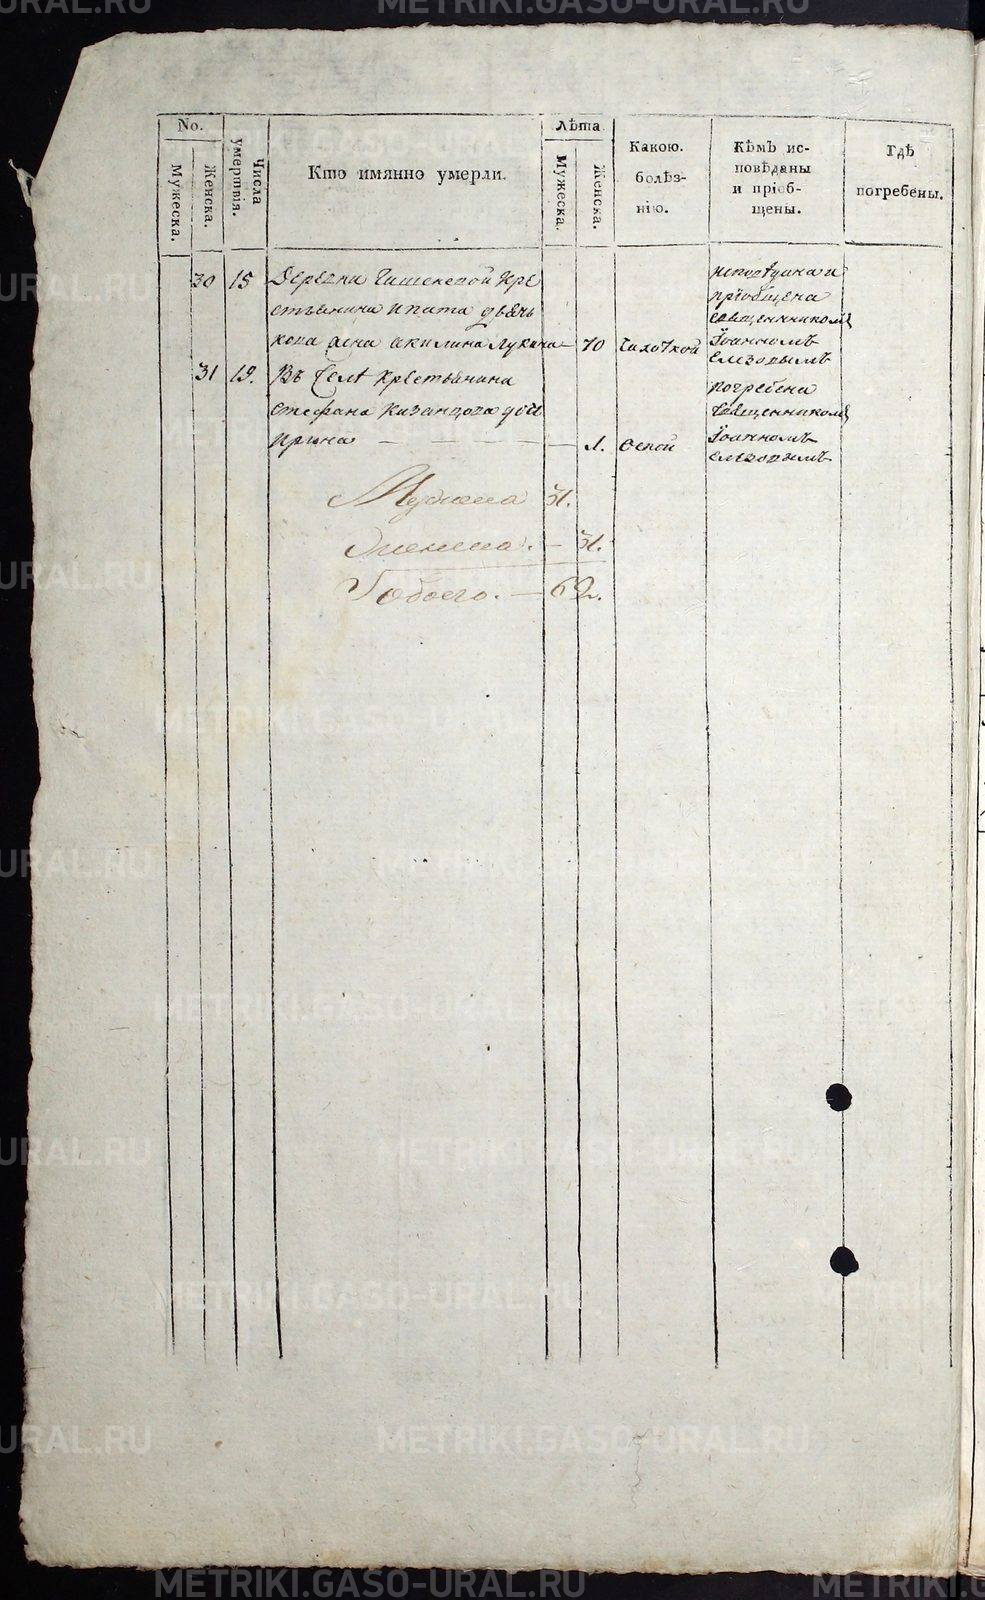 No.
Мужеска.
Женска.
Числа умертвія.
Кто имянно умерли.
Лѣта
Мужеска.
Женска.
Какою. болѣзнію.
Кѣмъ ис-
повѣданы
и пріоб-
щены.
Гдѣ
погребены.
30 15 Деревни кре
стьянина Ипата дьячь
кова жена Акилина Лукина 70 Чахоткой
исповѣдана и
пріобщена
священникомъ
Іоанномъ
31 19. Въ Селѣ крестьянина
Стефана Казанцова дочь
Ирина 1. Оспой
погребена
священникомъ
Іоанномъ
Мужеска 31.
Женска. 31.
Обоего. 62.
METRIKI.GASO-URAL.RU